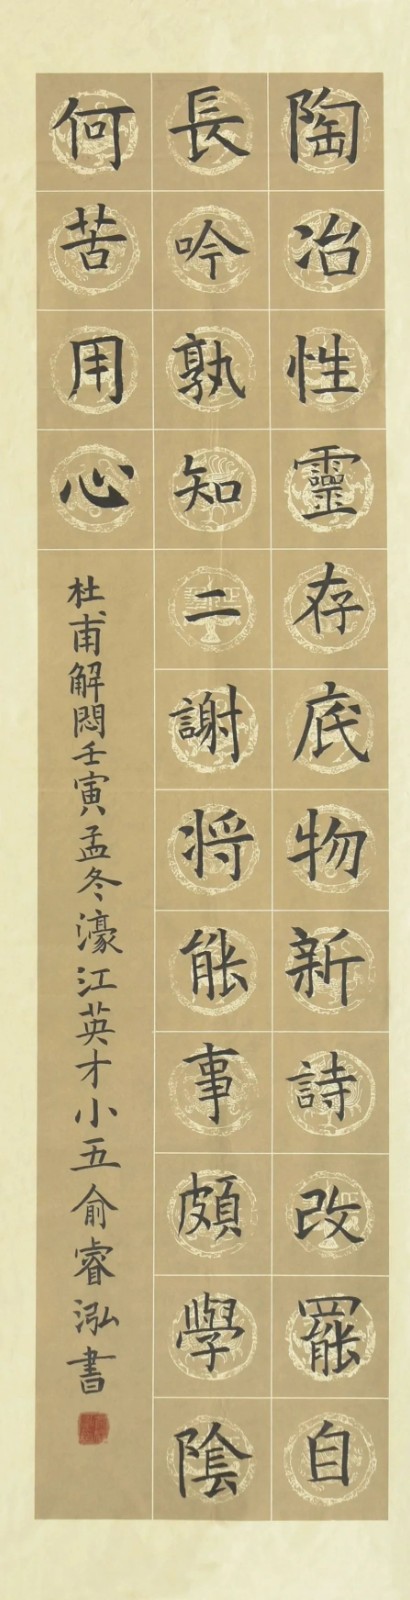 陶冶性靈存底物新詩改罷自
長吟孰知二謝将能事頗學陰
何苦用心
杜甫解悶壬寅孟冬濠江英才小五俞睿泓書